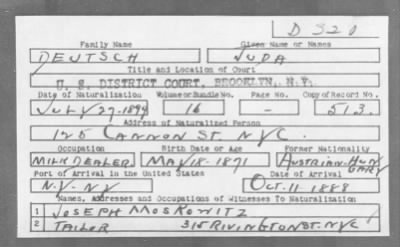 D 320
Family Name Given Name or Names
DEUTSCH JUDA
Title and Location of Court
U. S. DISTRICT COURT, BROOKLYN, N.Y.
Date of Naturalization Volume or Bundle No. Page No. Copy of Record No.
JULY 27-1894 16 - 513
Address of Naturalized Person
125 CANNON ST. NYC.
Occupation Birth Date or Age Former Nationality
MILK DEALER MAY 18-1871 AUSTRIAN-HUNGARY
Port of Arrival in the United States Date of Arrival
N.Y. NY OCT. 11-1888
Names, Addresses and Occupations of Witnesses To Naturalization
1 JOSEPH MOSKOWITZ
2 TAILOR 315 RIVINGTON ST. NYC